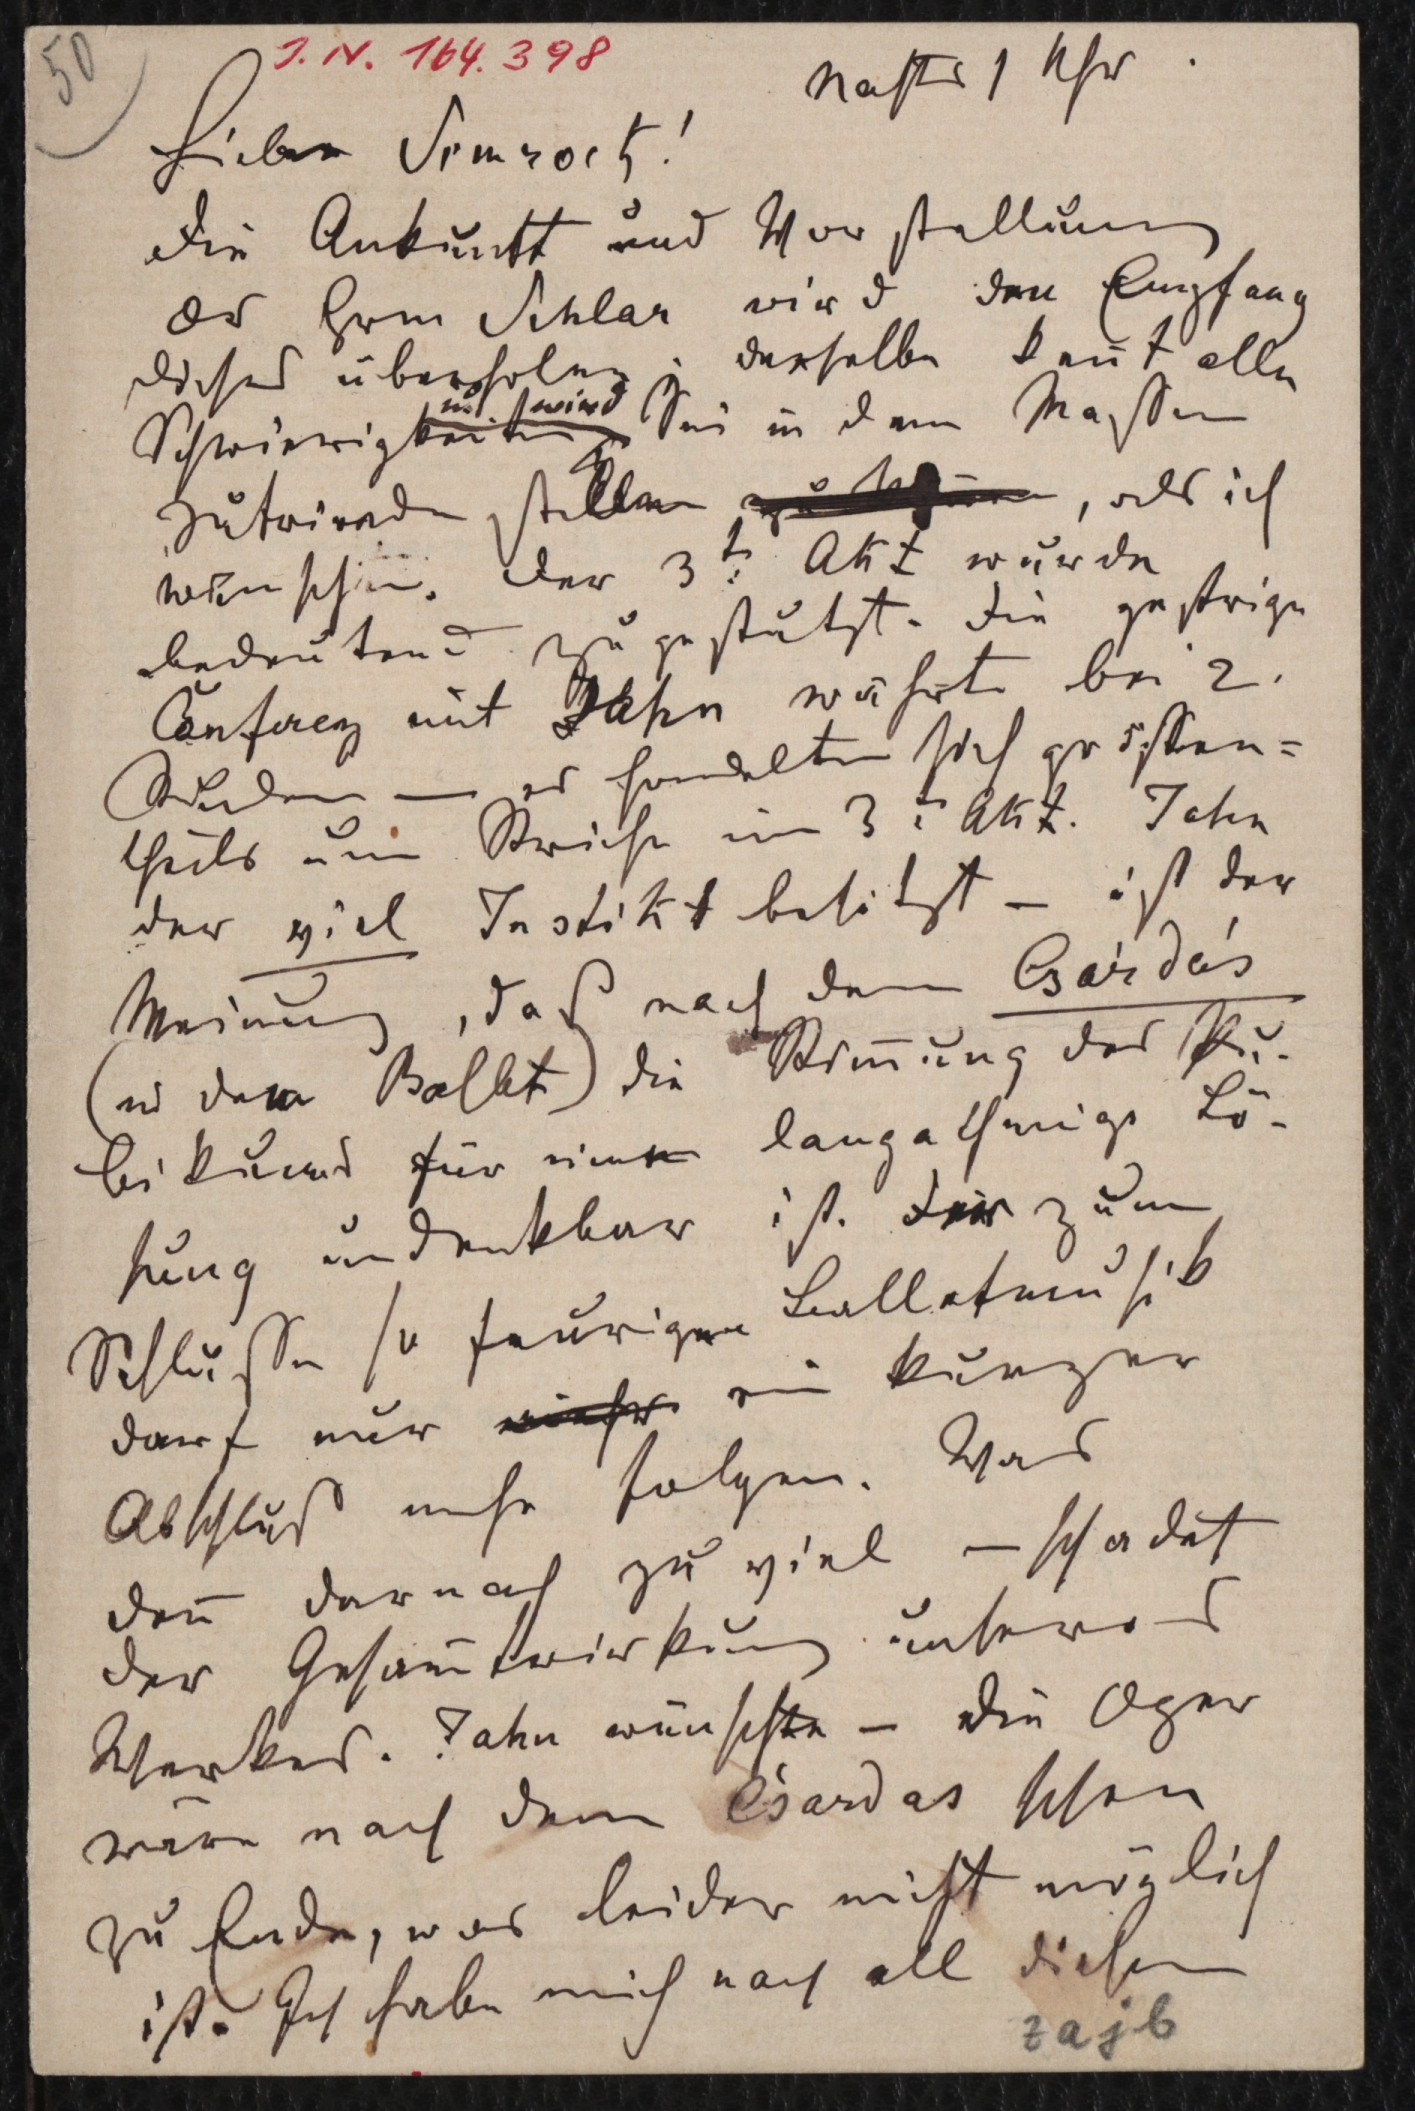 50
I. N. 164.398
Nachts 1 Uhr.
Lieber Simrock!
Die Ankunft und Vorstellung
des Hrrn Schlar wird den Empfang
dieses überholen; derselbe kent alle
Schwierigkeiten u. wird Sie in dem Maßen
zufrieden stellen, als ich
wünsche. Der 3te Akt wurde
bedeutend zugestutzt. Die gestrige
Conferenz mit Jahn währte bei 2
Stunden — es handelte sich grössten=
theils um Striche im 3te Akt. Jahn
der viel Instikt besitzt — ist der
Meinung, daß nach dem Csárdás
(in dem Ballet) die Stimung des Pu-
blikums für eine langathmige Lö-
sung undenkbar ist. Der zum
Schluße so feurigen Balletmusik
darf nur ein kurzer
Abschluß mehr folgen. Was
den darnach zu viel — schadet
der Gesamtwirkung unseres
Werkes. Jahn wünschte — die Oper
wäre nach dem Csardas schon
zu Ende, was leider nicht möglich
ist. Ich habe mich nach all diesem
zajb